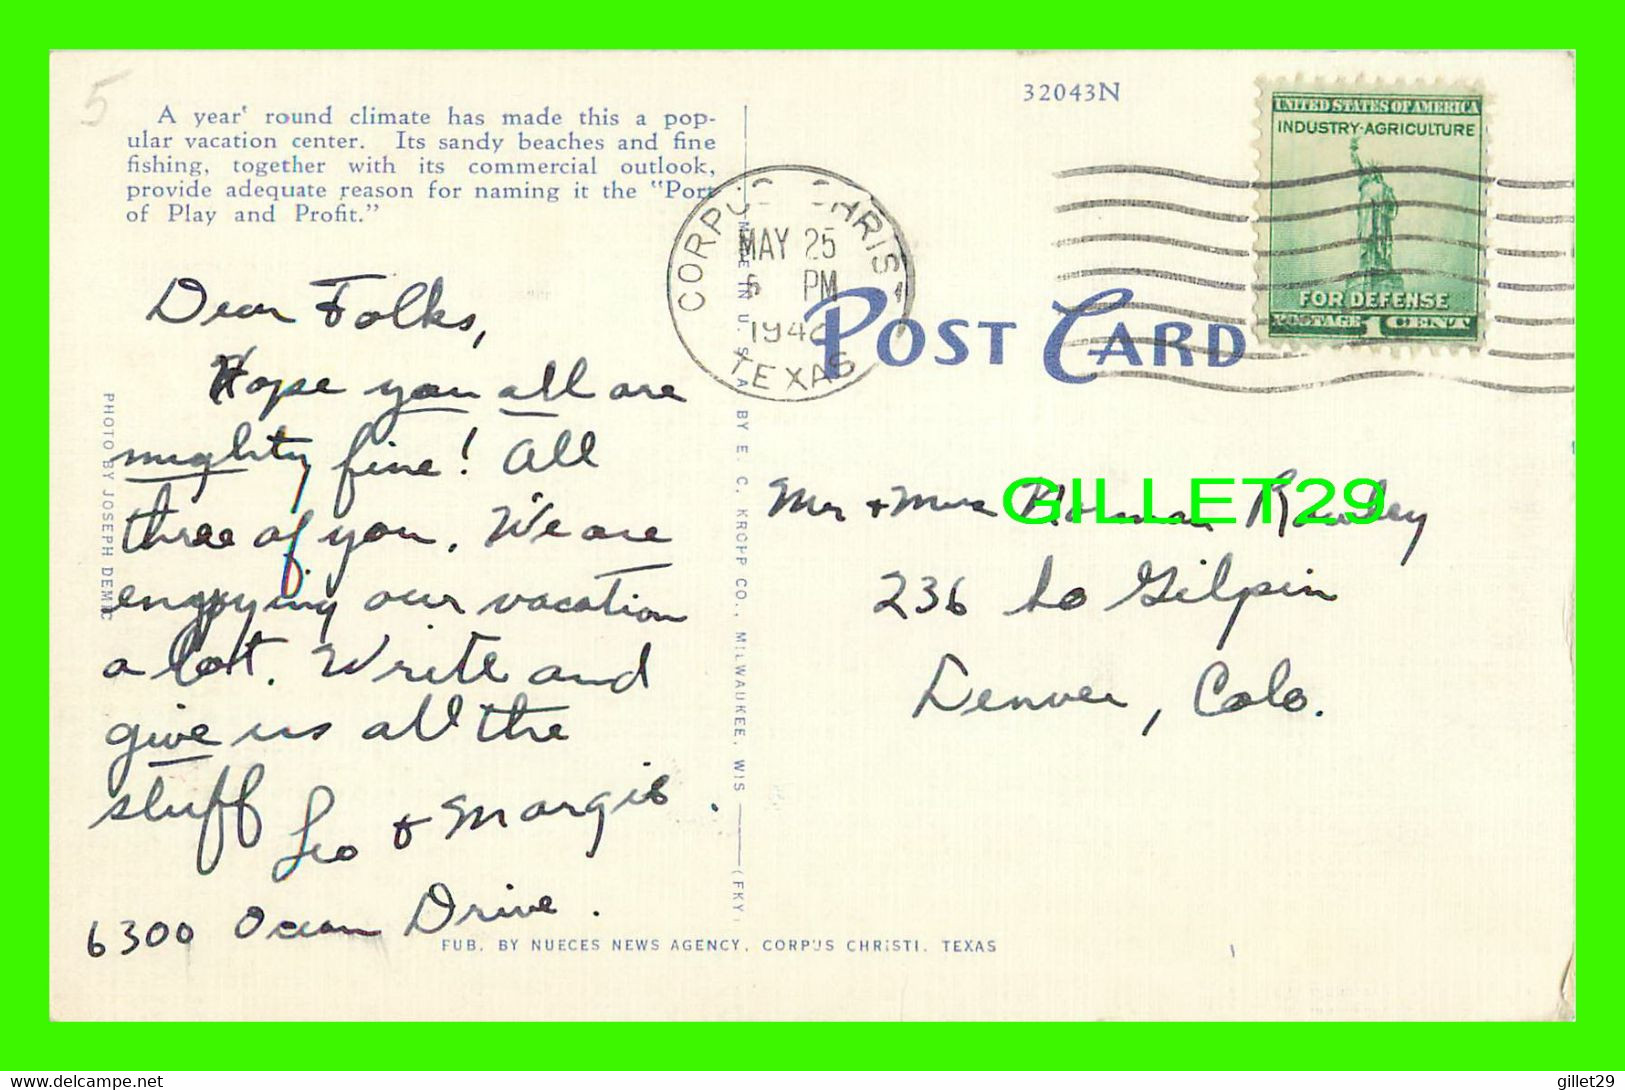 5
A year' round climate has made this a pop-
ular vacation center. Its sandy beaches and fine
fishing, together with its commercial outlook,
provide adequate reason for naming it the "Port
of Play and Profit."
32043N
UNITED STATES OF AMERICA
INDUSTRY·AGRICULTURE
FOR DEFENSE
POSTAGE 1 CENT
CORPUS CHRISTI
MAY 25
6 PM
1942
TEXAS
POST CARD
Dear Folks,
Hope you all are
mighty fine! All
three of you. We are
enjoying our vacation
a lot. Write and
give us all the
stuff
Leo + Margie.
6300 Ocean Drive.
PHOTO BY JOSEPH DEMIC
MADE IN U. S. A. BY E. C. KROPP CO., MILWAUKEE, WIS (FKY)
Mr + Mrs Holman Rowley
GILLET29
236 So Gilpin
Denver, Colo.
PUB. BY NUECES NEWS AGENCY, CORPUS CHRISTI, TEXAS
delcampe.net
gillet29